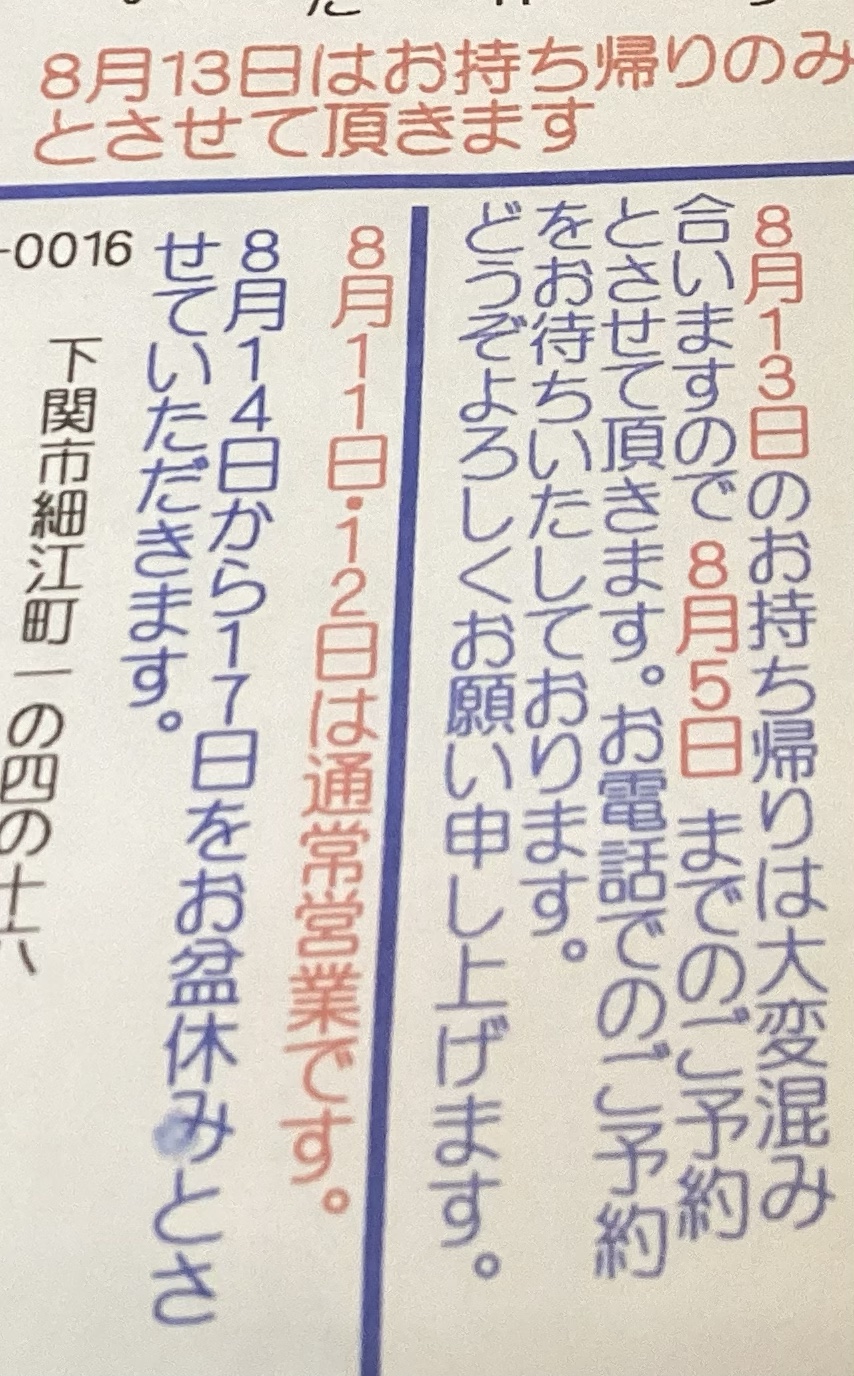 8月13日はお持ち帰りのみ
とさせて頂きます
8月13日のお持ち帰りは大変混み
合いますので 8月5日 までのご予約
とさせて頂きます。お電話でのご予約
をお待ちいたしております。
どうぞよろしくお願い申し上げます。
8月11日・12日は通常営業です。
8月14日から17日をお盆休みとさ
せていただきます。
-0016
下関市細江町一の四の十六